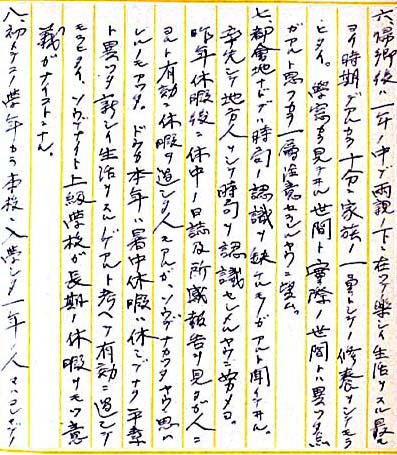 六、帰郷後ハ一年ノ中デ両親ノ下ニ在ツテ楽シイ生活ヲスル最モ
ヨイ時期デアルカラ十分ニ家族ノ一員トシテノ修養ヲシテモラ
ヒタイ。学窓カラ見タル世間ト実際ノ世間トハ異ツタ点
ガアルト思フカラ一層注意セラレンヤウニ望ム。
七、都会地ナドデハ時局ノ認識ヲ欠ケルモノガアルト聞イテヰル。
率先シテ地方人ヲシテ時局ヲ認識セシメルヤウニ努メヨ。
昨年休暇後ニ休中ノ日誌及所感報告ヲ見タガ人ニ
ヨルト有効ニ休暇ヲ過シタ人モアルガ、ソウデナカツタヤウニ思ハ
レルモノモアツタ。ドウカ本年ハ暑中休暇ハ休ミデナク平素
ト異ツタ新シイ生活ヲスルノデアルト考ヘテ有効ニ過シテ
モラヒタイ、ソウデナイト上級学校ガ長期ノ休暇ヲモツ意
義ガナイコトニナル。
八、初メテコノ学年カラ本校ヘ入学シタ一年ノ人